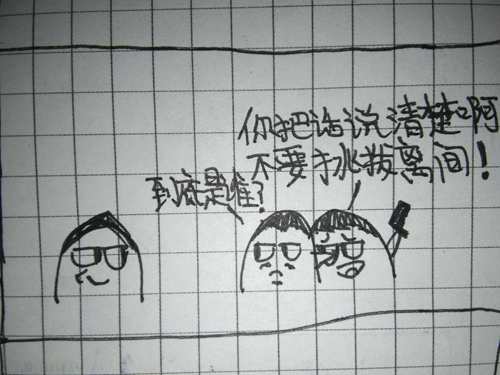 你把话说清楚啊
不要挑拨离间！
到底是谁？